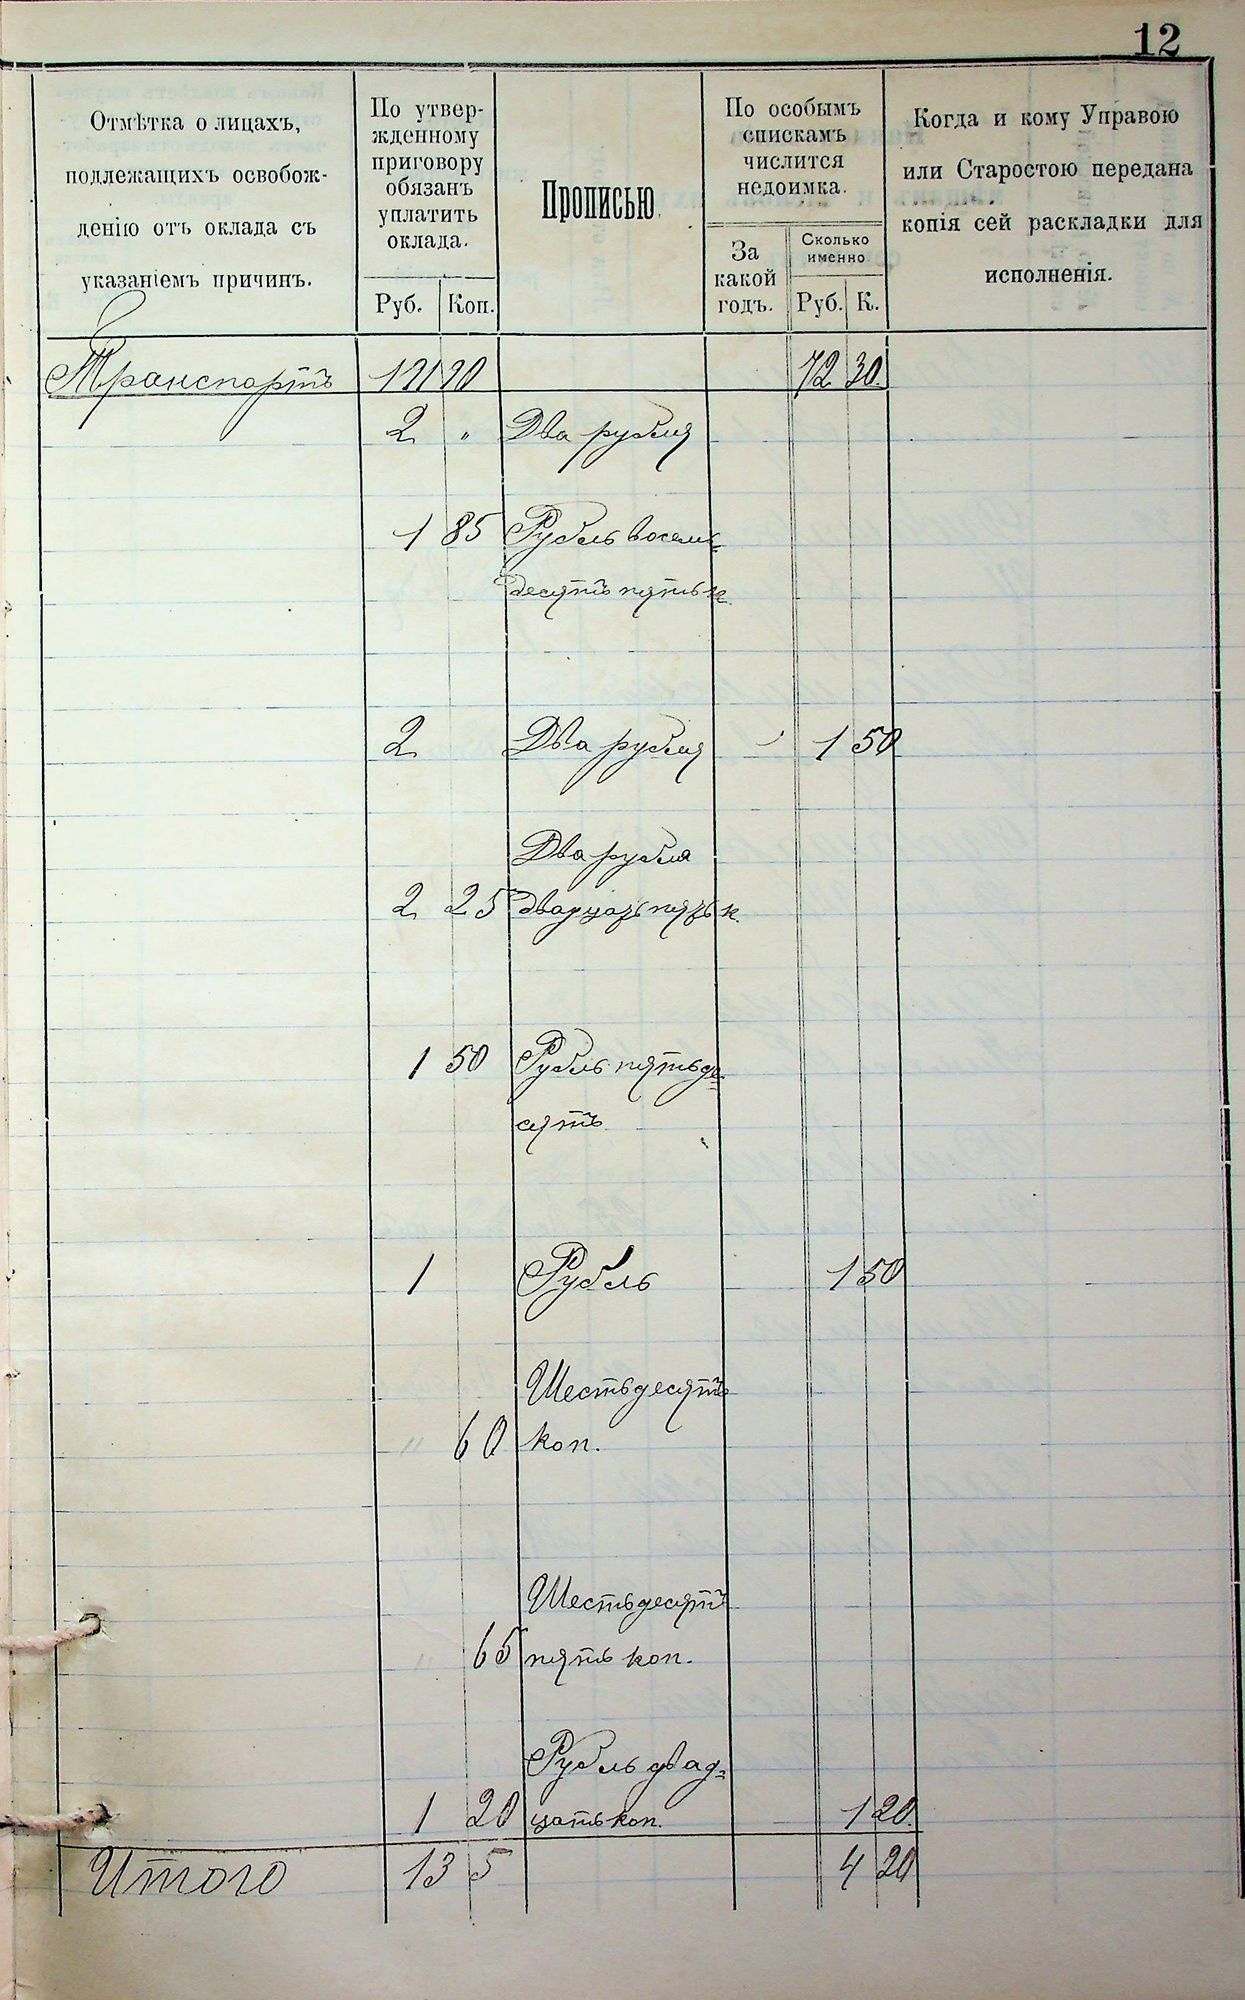 12
Отмѣтка о лицахъ,
подлежащихъ освобож-
денію отъ оклада съ
указаніемъ причинъ.
По утвер-
жденному
приговору
обязанъ
уплатить
оклада.
Руб. Коп.
Прописью
По особымъ
спискамъ
числится
недоимка.
За
какой
годъ.
Сколько
именно
Руб. К.
Когда и кому Управою
или Старостою передана
копія сей раскладки для
исполненія.
Транспортъ 121 20 72 30
2 „ Два рубля
1 85 Рубль восемь=
десятъ пять к.
2 Два рубля 1 50
Два рубля
2 25 двадцать пять к.
1 50 Рубль пятьде=
сятъ
1 Рубль 1 50
Шестьдесятъ
" 60 коп.
Шестьдесятъ
" 65 пять коп.
Рубль двад=
1 20 цать коп. 1 20
Итого 13 5 4 20